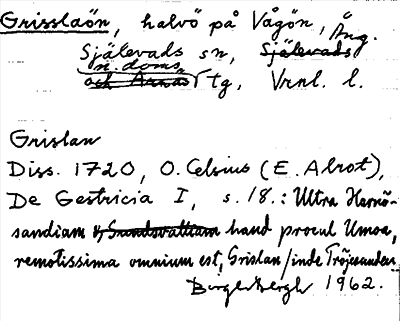 Grisslaön, halvö på Vågön, Ång.
Själevads sn, Själevads
n. doms
och Arnäs tg, Vrnl. l.
Grislan
Diss. 1720, O. Celsius (E. Alrot),
De Gestricia I, s. 18.: Ultra Hernö-
sandiam & Sundsvalliam haud procul Umoa,
remotissima omnium est, Grislan / inde Tröjesundet
Birger Bergh 1962.